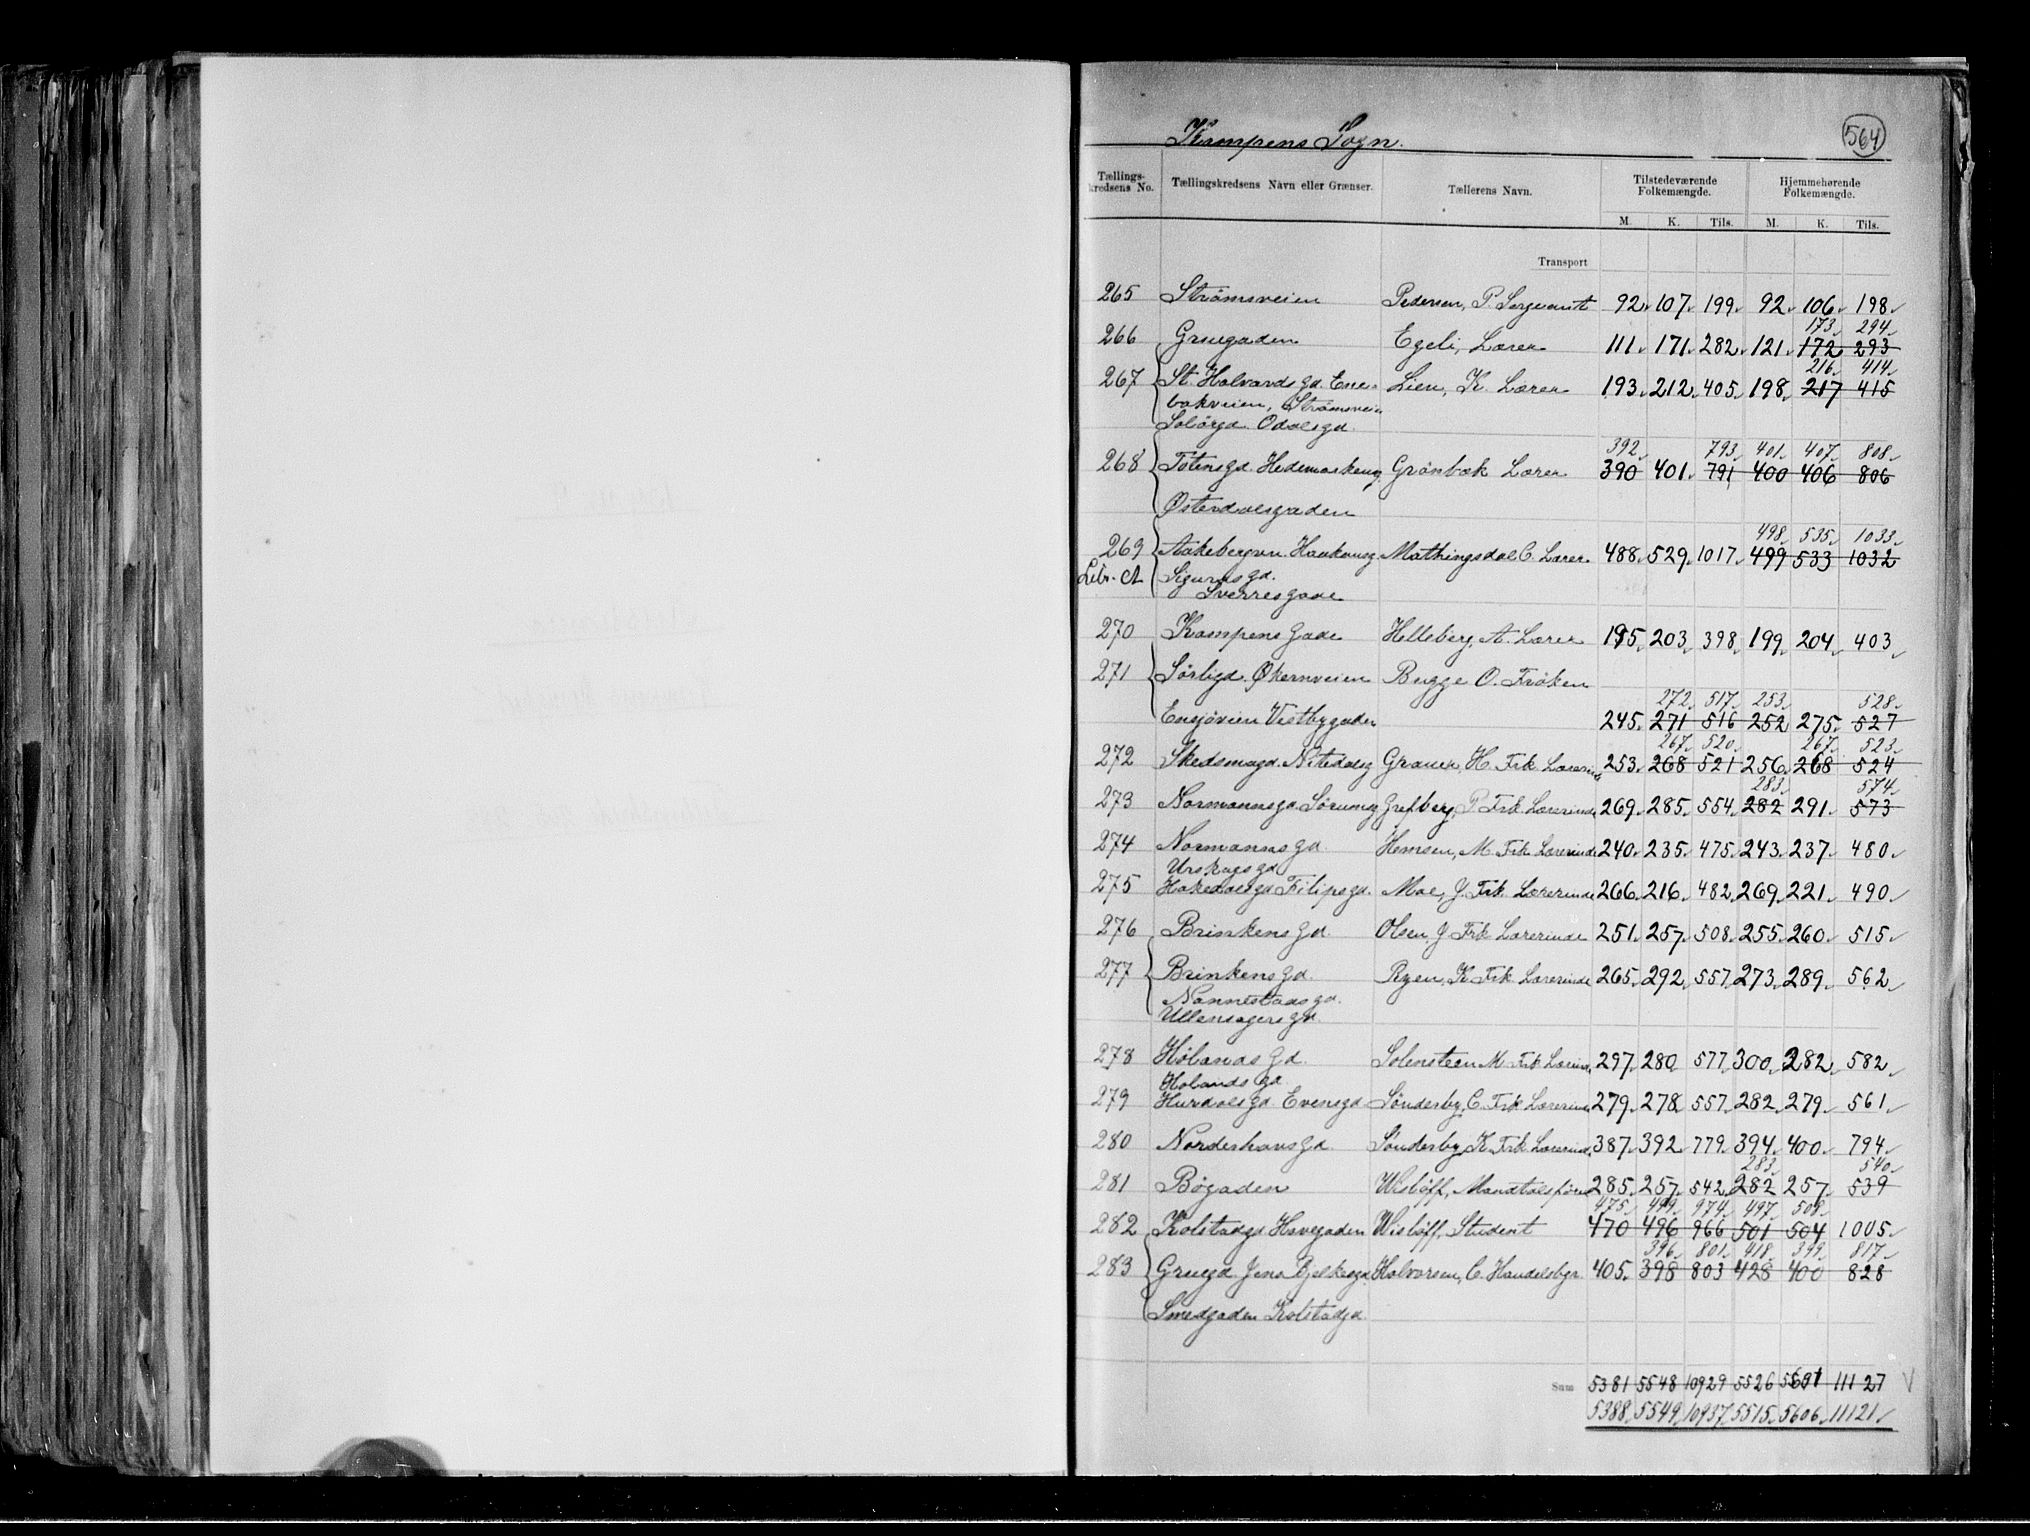 Kampens Sogn.
564
Tællings-kredsens No. Tællingskredsens Navn eller Grænser. Tællerens Navn. Tilstedeværende Folkemængde. Hjemmehørende Folkemængde.
M. K. Tils. M. K. Tils.
Transport
265 Strømsveien Pedersen, P. Sergeant 92 107 199 92 106 198
173 294
266 Gruegaden Egeli, Lærer 111 171 282 121 172 293
216 414
267 St. Halvards gd. Ene- Lien, K. Lærer 193 212 405 198 217 415
bakveien, Strømsveien
Solørgd. Odalsgd.
392 793 401 407 808
268 Totensgd. Hedemarkeng Grönbæk Lærer 390 401 791 400 406 806
Østerdalsgaden
498 535 1033
269 Aakebergvn. Haakonsg Mathingsdal C. Lærer 488 529 1017 499 533 1032
Litr. A Sigurdsgd.
Sverresgade
270 Kampens Gade Helleberg, A. Lærer 195 203 398 199 204 403
271 Sørligd. Økernveien Bugge O. Frøken
272 517 253 528
Ensjøveien Vestbygaden 245 271 516 252 275 527
267 520 267 523
272 Skedsmogd. Nitedalsg Grauer, H. Frk. Lærerinde 253 268 521 256 268 524
283 574
273 Normannsgd. Sørumsg Grefberg, P. Frk. Lærerinde 269 285 554 282 291 573
274 Normannsgd Hemsen, M. Frk. Lærerinde 240 235 475 243 237 480
Urskogsgd
275 Hakedalsgd Filipsgd. Moe, J. Frk. Lærerinde 266 216 482 269 221 490
276 Brinkens Gd. Olsen, J. Frk Lærerinde 251 257 508 255 260 515
277 Brinkens Gd. Ryen, K. Frk. Lærerinde 265 292 557 273 289 562
Nannestadsgd.
Ullensagersgd.
278 Hølands Gd. Solensteen M. Frk. Lærerinde 297 280 577 300 282 582
Hølands gd
279 Hurdalsgd Evensgd Sønderby, C. Frk. Lærerinde 279 278 557 282 279 561
280 Norderhovsgd. Sønderby, K. Frk. Lærerinde 387 392 779 394 400 794
283 540
281 Bøgaden Wisløff, Mandtalsfører 285 257 542 282 257 539
475 499 974 497 508
282 Kolstadgd Havegaden Wisløff, Student 470 496 966 501 504 1005
396 801 418 399 817
283 Gruegd. Jens Bjelkesgd Halvorsen, C. Handelsbgr. 405 398 803 428 400 828
Smedgaden Kolstadgd.
Sum 5381 5548 10929 5526 5601 11127
5388 5549 10937 5515 5606 11121